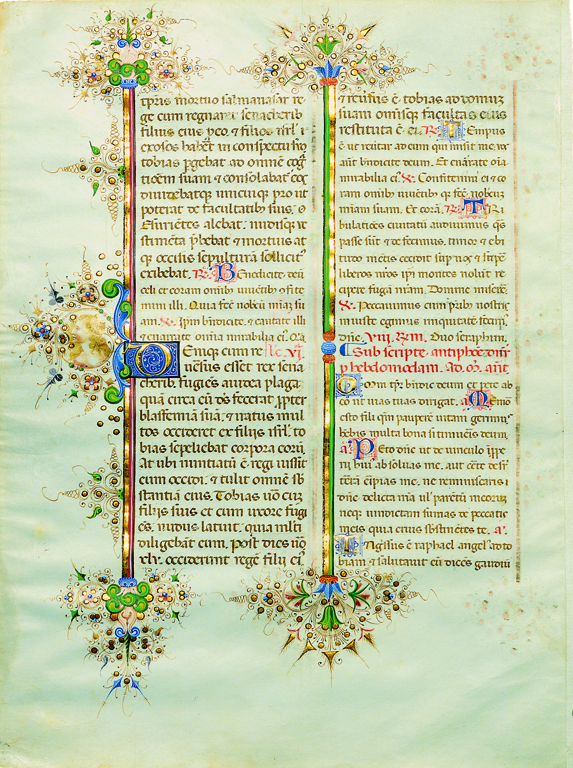 mortuo salmanasar re
ge cum regnaret senacherib
filius eius pro eo & filios isrl
exosos in conspectu suo
tobias pgebat ad omnē
suam & consolabat
unicuiq pro ut
poterat de facultatib suis. &
Esurientes alebat. nudisq ue
stimēta pbebat & mortuis at
q occisis sepulturā sollicit
exibebat. R. Benedicite deū
celi et coram omib uiuētib
illi. Quia fecit nobcū
suam
& enarrate omia mirabilia ei.
uersus esset rex sena
cherib. fugiēs a iudea plagā
quā circa eū d's fecerat ppter
blasfemiā suā. & iratus mul
tos occideret ex filijs isrl. to
bias sepeliebat corpora eorū.
At ubi nuntiatū ē regi iussit
eum occidi. & tulit omnē sb
stantiā eius. Tobias uō cū
filijs suis et cum uxore fugi
ēs. nudus latuit. quia mlti
diligebāt eum. Post dies uō
xlv. occiderunt regē filij ei'
& reuersus ē tobias ad domū
suam omisq facultas eius
restituta ē ei. R. Tempus
ē ut reuertar ad eum qui misit me uos
aūt bn̄dicite deum. Et enarrate oīa
mirabilia ei'. Confitemini ei co
ram omib uiuētib q fec nobcū
miām suam. Et corā. R. Tri
bulationes ciuitatū audiuimus qs
passe sūt & defecimus. timor & ebi
tudo mētis cecidit sup nos & sup
liberos nros ipi montes nolūt re
cipere fugā nram. Domine miserē.
Peccauimus cum patrib nostris
iniuste egimus iniquitatē fecim'
dn̄e. VIII. Rm. Duo seraphim.
Sub scripte antiphōe dn̄r
p hebdomodam. ad. O. an̄t.
Omni tp̄r bn̄dic deum et pete ab
eo ut uias tuas dirigat. a. Memo
esto fili qm̄ pauperē uitam gerimus
hēbis multa bona si timueris deum.
a. Peto dn̄e ut de uinculo
rij hui' absoluas me. aut certe desr̄
terā eripias me. ne reminiscaris
dn̄e delicta mīa ul' parētū meorū
neq uindictam sumas de peccatis
meis quia eruis sustinētes te. a.
Ingressus ē raphael angel' ad to
biam & salutauit eū dices gaudiū